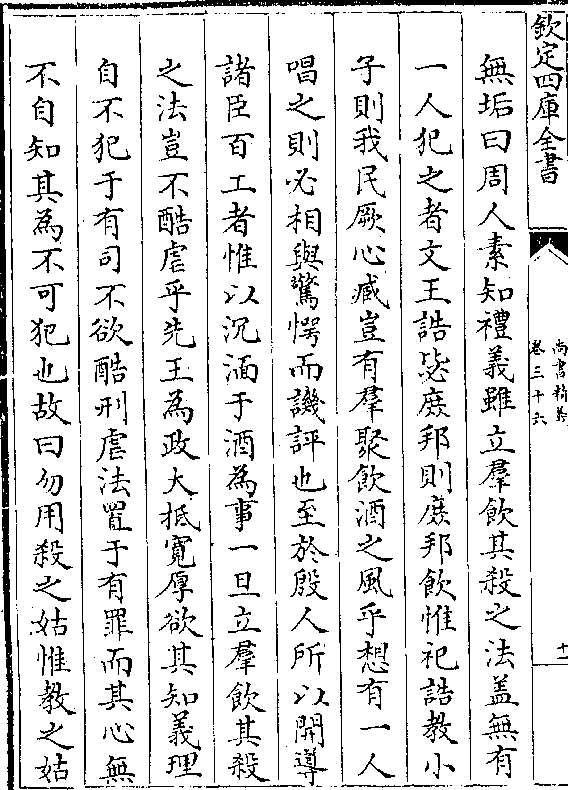 欽定四庫全書
尚書精義
卷三十六
十一
無垢曰周人素知禮義雖立羣飲其殺之法蓋無有
一人犯之者文王誥毖庶邦則庶邦飲惟祀誥教小
子則我民厥心臧豈有羣聚飲酒之風乎想有一人
唱之則必相與驚愕而譏評也至於殷人所以開導
諸臣百工者惟以沉湎于酒為事一旦立羣飲其殺
之法豈不酷虐乎先王為政大抵寛厚欲其知義理
自不犯于有司不欲酷刑虐法置于有罪而其心無
不自知其為不可犯也故曰勿用殺之姑惟教之姑